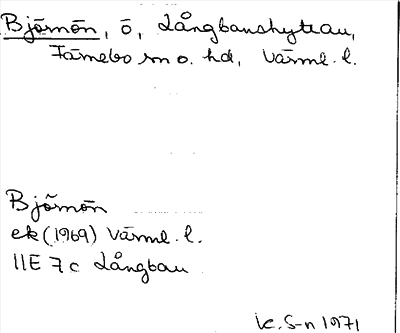 Björnön, ö, Långbanshyttan,
Färnebo sn o. hd, Värml. l.
Björnön
ek (1969) Värml. l.
11E 7c Långban
1971